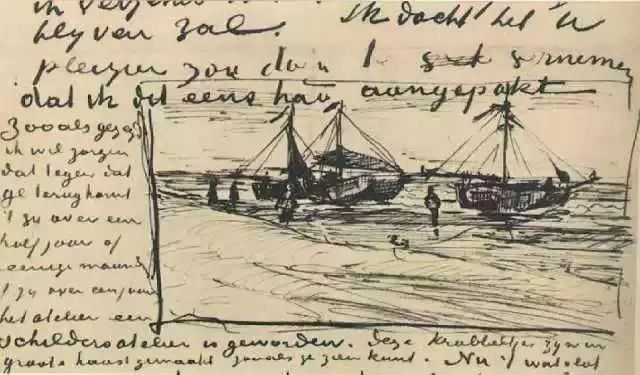 ik Ik dacht het U
blyven zal.
plezier zou doen
dat ik dit eens had aangepakt
Zooals gezegd
ik wil zorgen
dat tegen dat
ge terugkomt
't zy over een
half jaar of
eenige
't zy over een jaar
het atelier een
schildersatelier is geworden. Deze krabbeltjes zyn in
groote haast gemaakt zooals ge zien kunt. Nu 't wat vlot